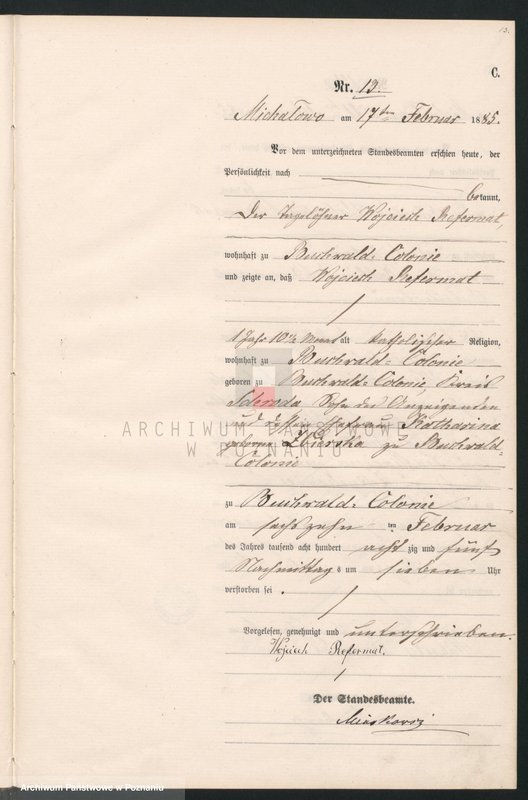 13.
C.
Nr. 13.
Michałowo am 17ten Februar 1885.
Vor dem unterzeichneten Standesbeamten erschien heute, der
Persönlichkeit nach
bekannt,
Der Tagelöhner Wojciech Refermat,
wohnhaft zu Buchwald-Colonie
und zeigte an, daß Wojciech Refermat
1 Jahr 10½ Monat alt katholischer Religion,
wohnhaft zu Buchwald-Colonie
geboren zu Buchwald-Colonie, Kreis
Schroda Sohn des Anzeigenden
und Ehefrau Katharina
geborene Zbierska zu Buchwald-
Colonie
ARCHIWUM PAŃSTWOWE
W POZNANIU
zu Buchwald-Colonie
am sechszehn ten Februar
des Jahres tausend acht hundert acht zig und fünf
Nachmittags um sieben Uhr
verstorben sei.
Vorgelesen, genehmigt und unterschrieben.
Wojciech Refermat.
Der Standesbeamte.
Archiwum Państwowe w Poznaniu